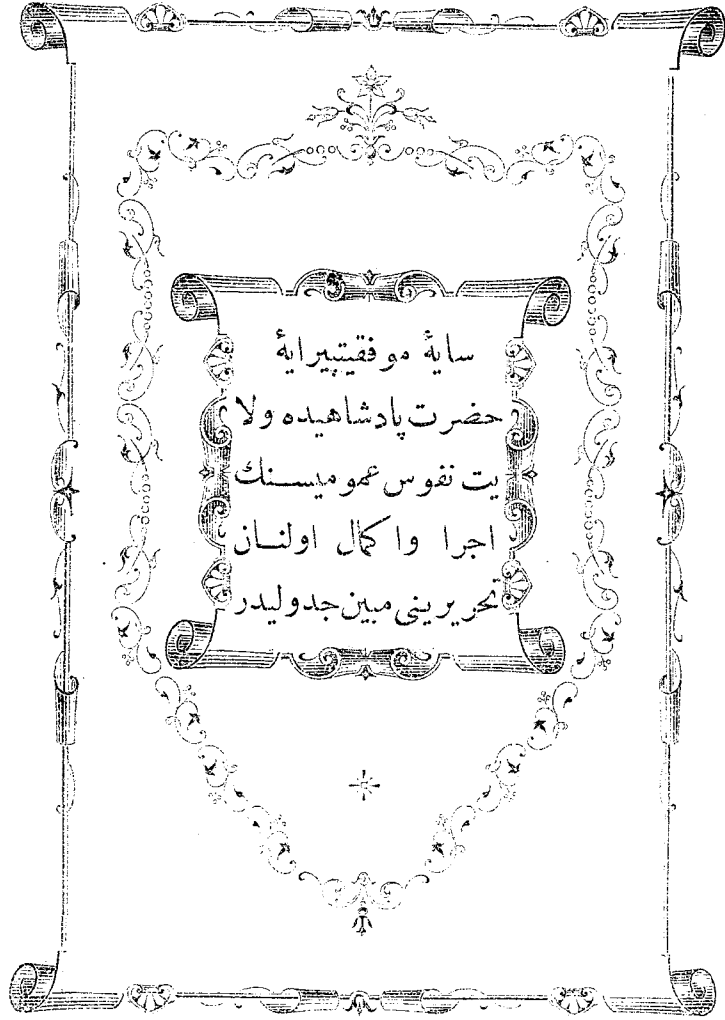 سایۀ موفقیتپیرایۀ
حضرت پادشاهیده ولا
یت نفوس عمومیسـنك
اجرا واكمال اولنـان
تحریرینی مبین جدولیدر